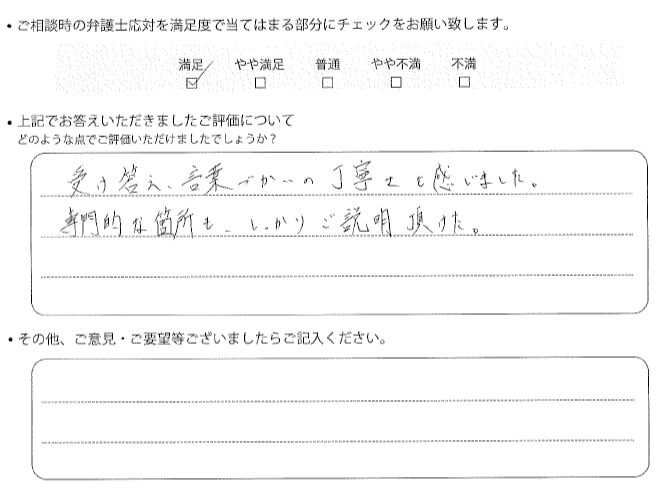 • ご相談時の弁護士応対を満足度で当てはまる部分にチェックをお願い致します。
満足 やや満足 普通 やや不満 不満
☑ □ □ □ □
• 上記でお答えいただきましたご評価について
どのような点でご評価いただけましたでしょうか?
受け答え、言葉づかいの丁寧さを感じました。
専門的な箇所も、しっかりご説明頂けた。
• その他、ご意見・ご要望等ございましたらご記入ください。